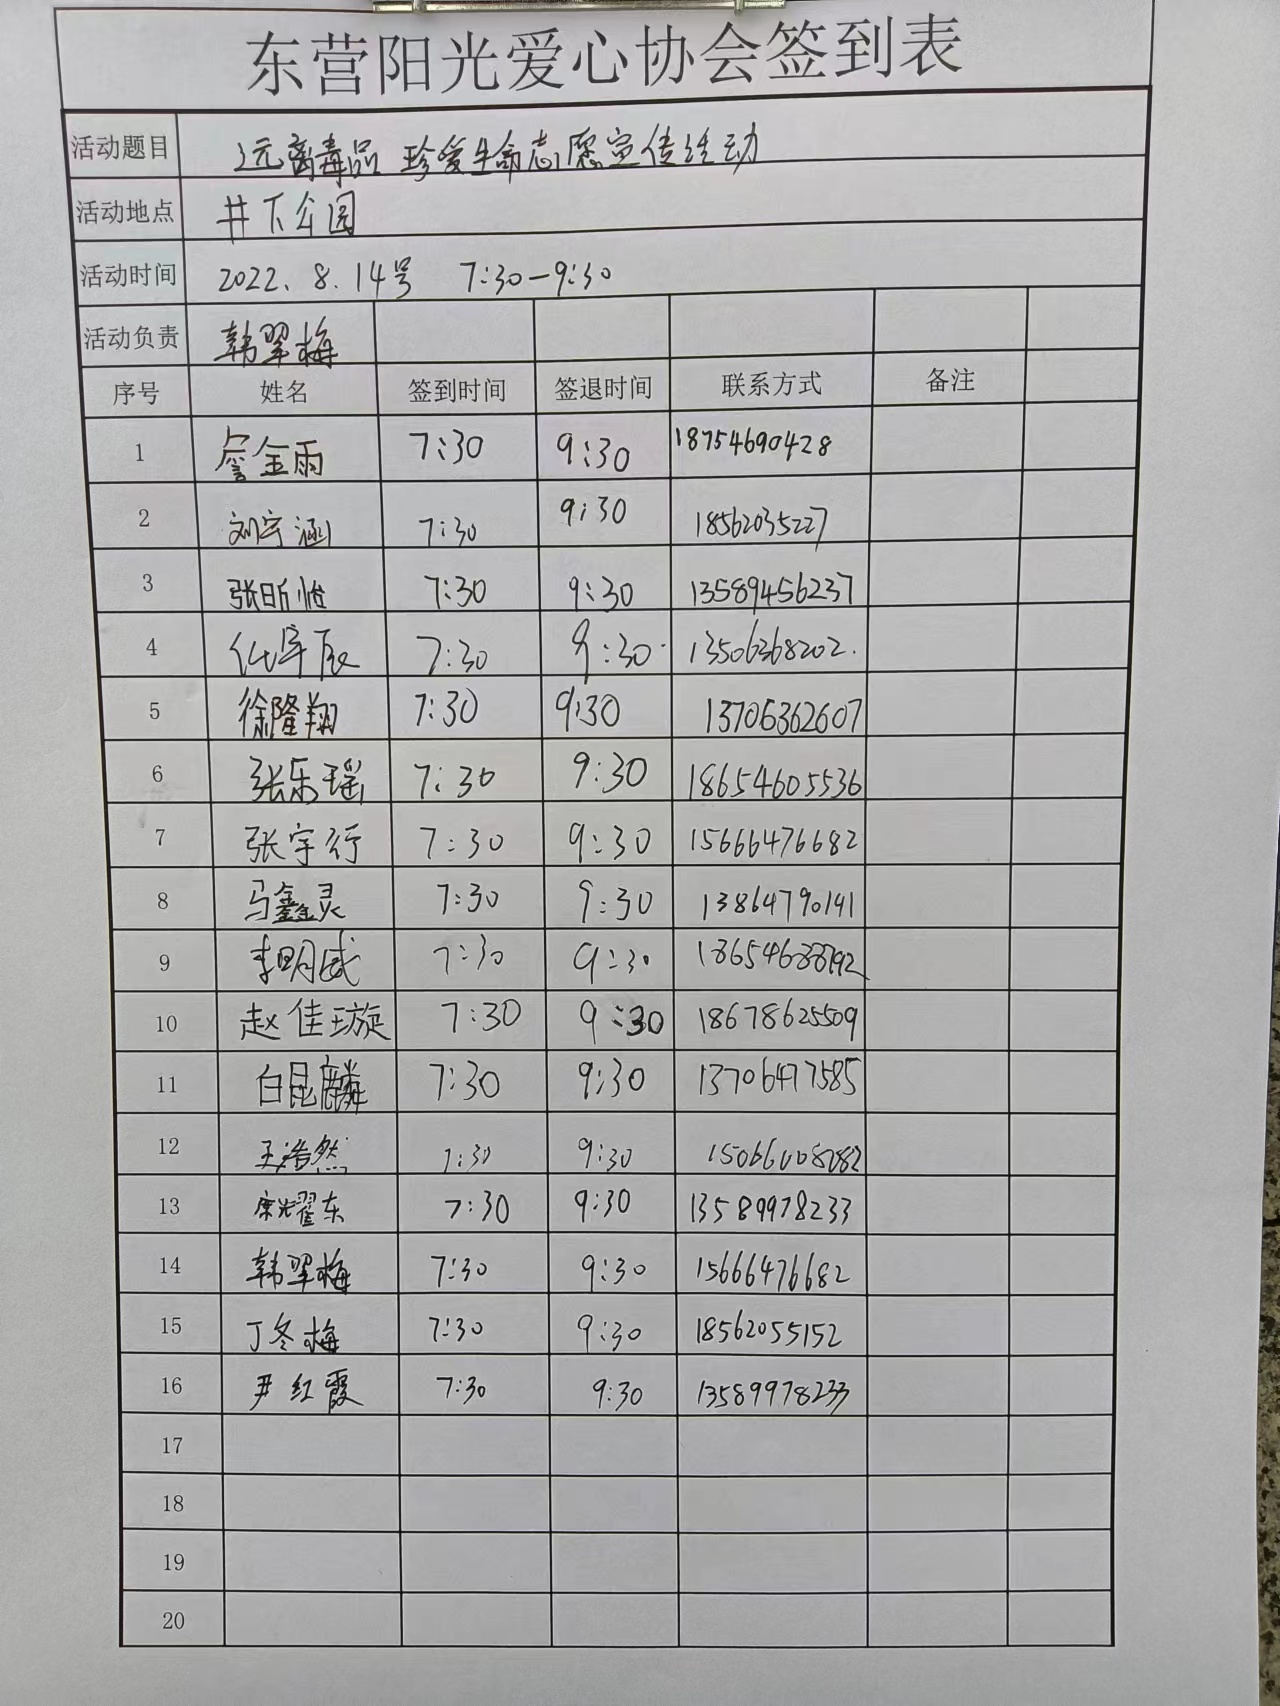 东营阳光爱心协会签到表
活动题目 远离毒品 珍爱生命志愿宣传活动
活动地点 井下公园
活动时间 2022.8.14号 7:30—9:30
活动负责 韩翠梅
序号 姓名 签到时间 签退时间 联系方式 备注
1 詹金雨 7:30 9:30 18754690428
2 刘宇涵 7:30 9:30 18562035227
3 张昕 7:30 9:30 13589456237
4 7:30 9:30 13506368202
5 徐隆翔 7:30 9:30 13706362607
6 张乐瑶 7:30 9:30 18654605536
7 张宇行 7:30 9:30 15666476682
8 马鑫灵 7:30 9:30 13864790141
9 李明威 7:30 9:30
10 赵佳璇 7:30 9:30 18678625509
11 白昆麟 7:30 9:30 13706477585
12 王浩然 7:30 9:30 15066008082
13 耀东 7:30 9:30 13589978233
14 韩翠梅 7:30 9:30 15666476682
15 丁冬梅 7:30 9:30 18562055152
16 尹红霞 7:30 9:30 13589978233
17
18
19
20